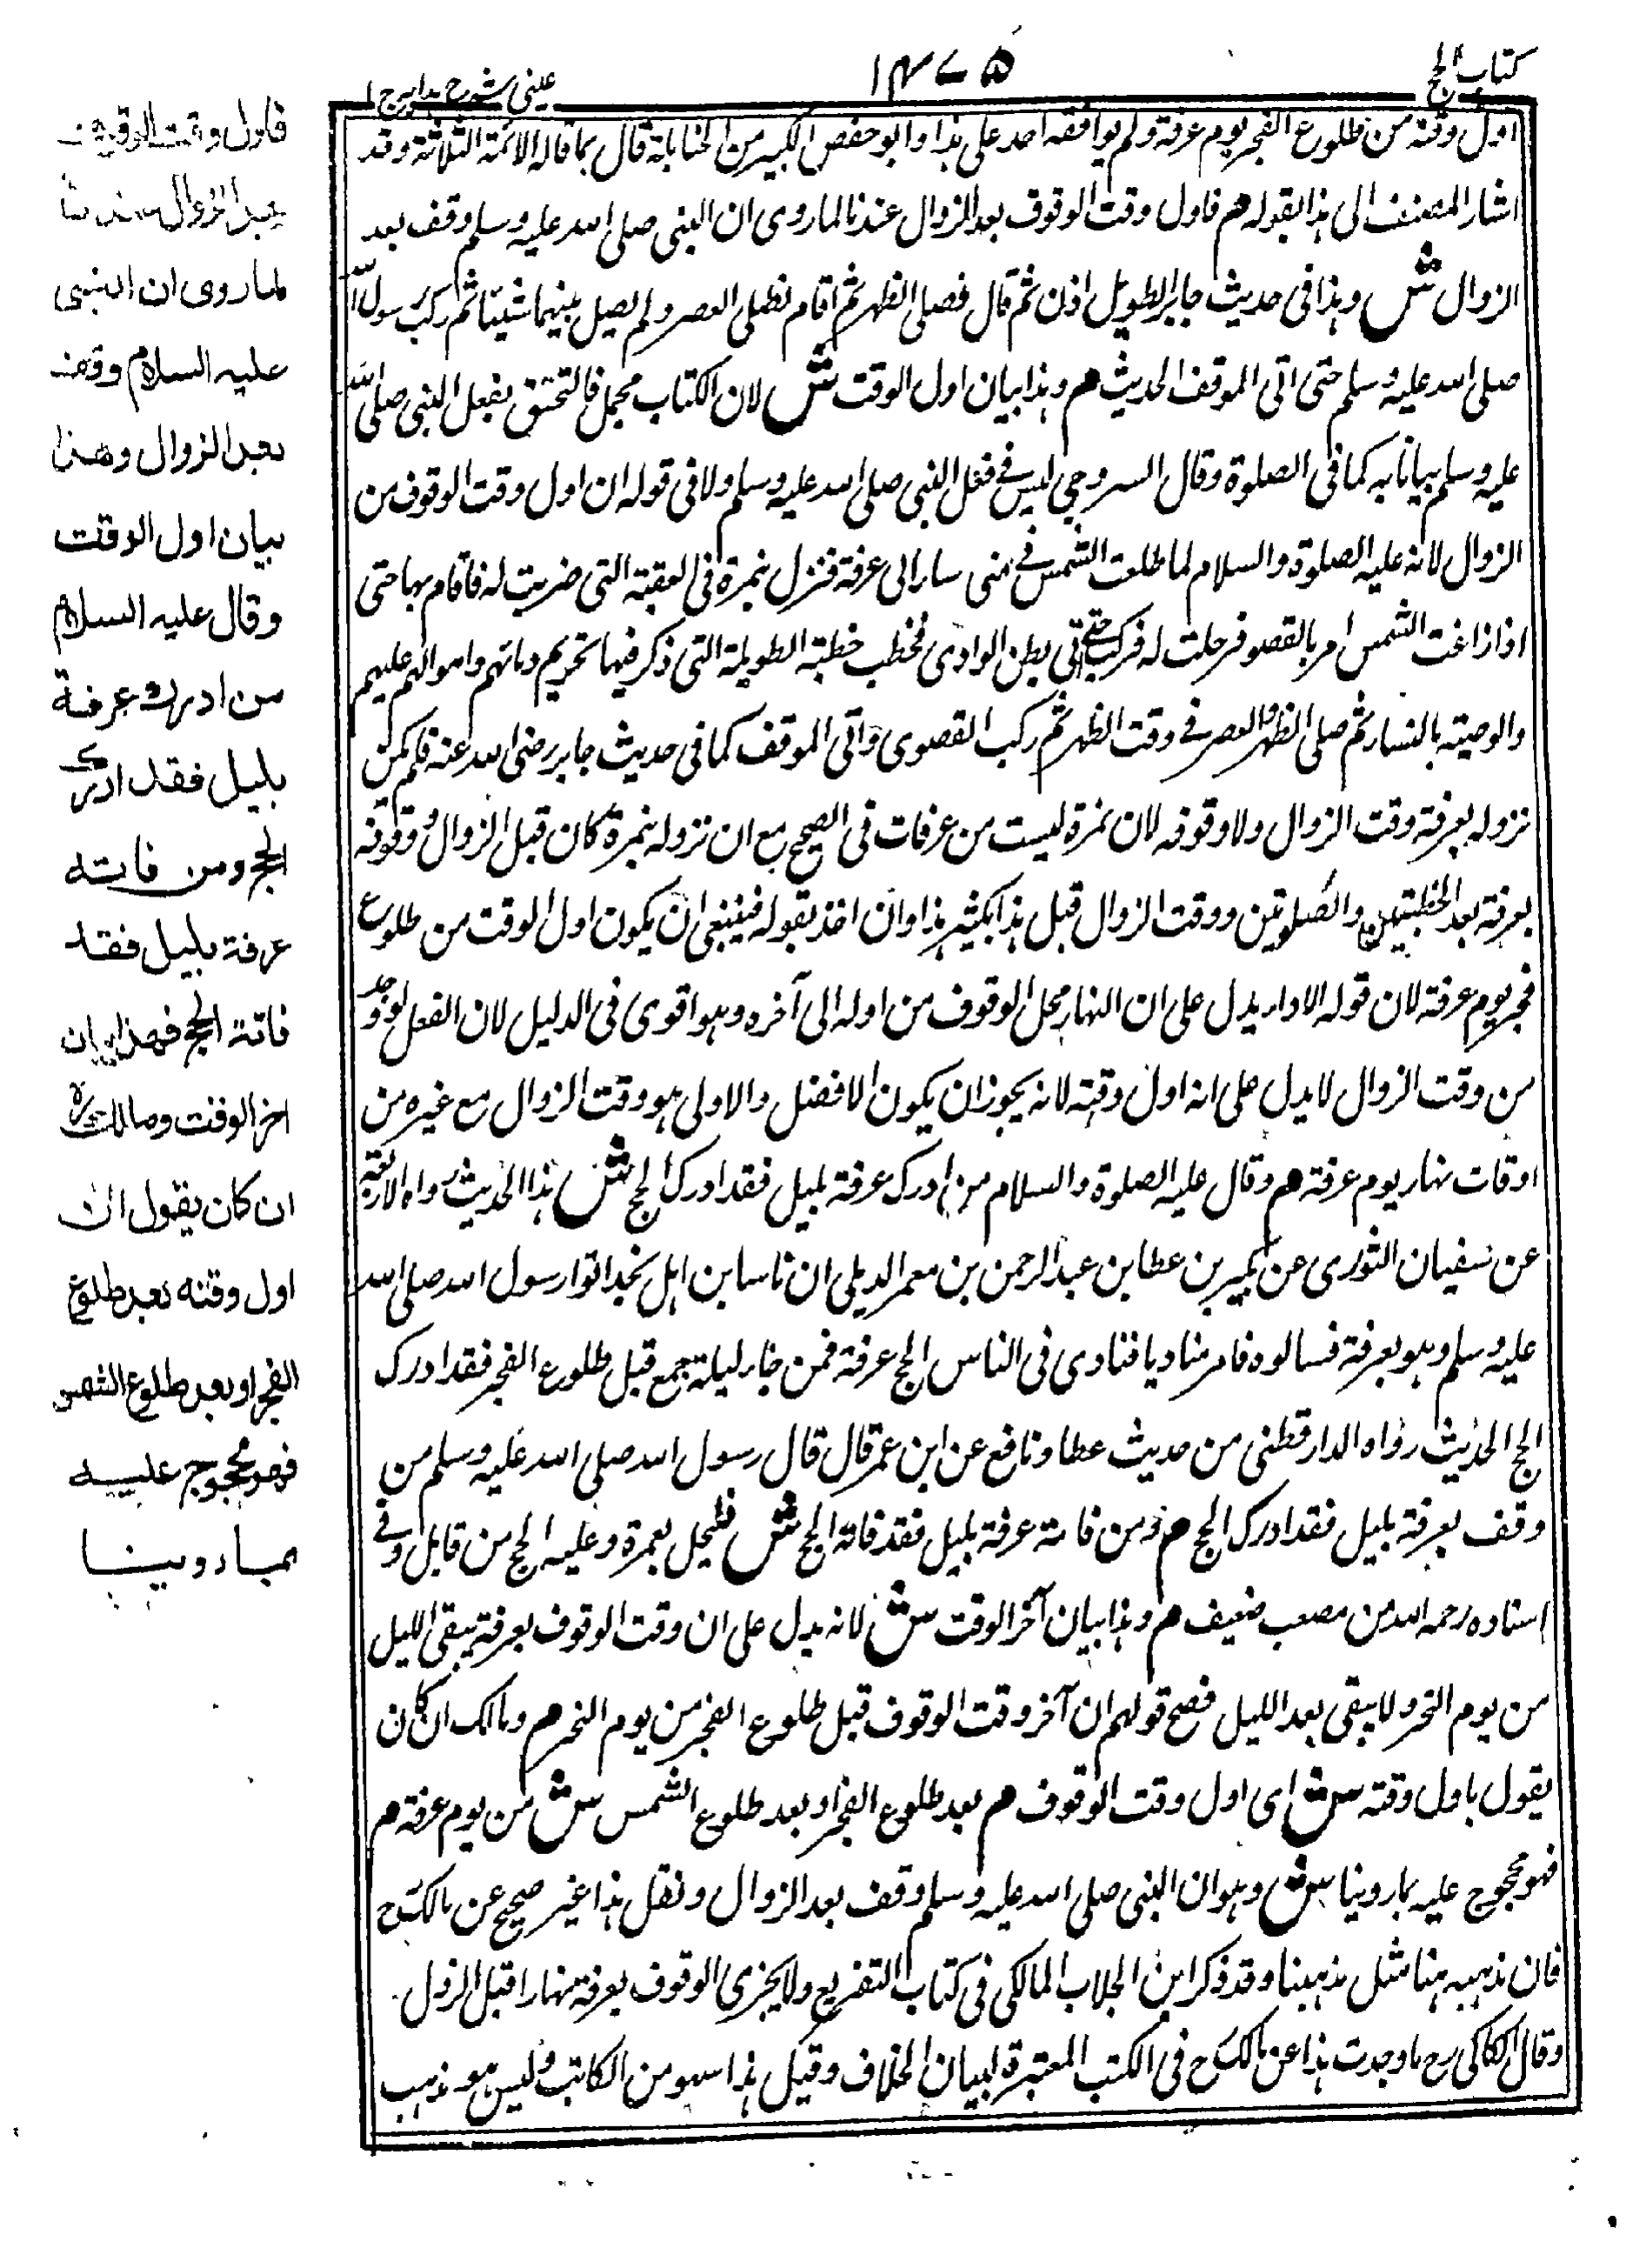 كتاب الحج
١٤٧٥
عينى شرح هدايه ج ا
اول وقته من طلوع الفجر يوم عرفة ولم يوافقه احد على هذا وابو حفص الكبير من الحنابلة قال بما قاله الائمة الثلاثة وقد
اشار المصنف الى هذا بقوله هم فاول وقت الوقوف بعد الزوال عندنا لما روى ان النبى صلى الله عليه وسلم وقف بعد
الزوال ش وهذا فى حديث جابر الطويل اذن ثم قال فصلى الظهر ثم اقام فصلى العصر ولم يصل بينهما شيئا ثم ركب رسول الله
صلى الله عليه وسلم حتى اتى الموقف الحديث هم وهذا بيان اول الوقت ش لان الكتاب مجمل فالتحق بفعل النبى صلى الله
عليه وسلم بيانا به كما فى الصلوة وقال السروجي ليس فى فعل النبى صلى الله عليه وسلم ولا فى قوله ان اول وقت الوقوف من
الزوال لانه عليه الصلوة والسلام لما طلعت الشمس فى منى سار الى عرفة فنزل بنمرة فى القبة التى ضربت له فاقام بها حتى
اذا زاغت الشمس امر بالقصو فرحلت له فركب حتى اتى بطن الوادى فخطب خطبته الطويلة التى ذكر فيها تحريم دمائهم واموالهم عليهم
والوصية بالنساء ثم صلى الظهر والعصر فى وقت الظهر ثم ركب القصوى واتى الموقف كما فى حديث جابر رضى الله عنه فلم يكن
نزوله بعرفة وقت الزوال ولا وقوفه لان نمرة ليست من عرفات فى الصحيح مع ان نزوله بنمرة كان قبل الزوال ووقوفه
بعرفة بعد الخطبتين والصلوتين ووقت الزوال قبل هذا بكثير هذا وان اخذ بقوله فينبغى ان يكون اول الوقت من طلوع
فجر يوم عرفة لان قوله الاداء يدل على ان النهار محل الوقوف من اوله الى آخره وهو اقوى فى الدليل لان الفعل لو وجد
من وقت الزوال لا يدل على انه اول وقته لانه يجوز ان يكون الافضل والاولى هو وقت الزوال مع غيره من
اوقات نهار يوم عرفة هم وقال عليه الصلوة والسلام من ادرك عرفة بليل فقد ادرك الحج ش هذا الحديث رواه الاربعة
عن سفيان الثورى عن بكير بن عطا بن عبد الرحمن بن معمر الديلى ان ناسا من اهل نجد اتوا رسول الله صلى الله
عليه وسلم وهو بعرفة فسالوه فامر مناديا فنادى فى الناس الحج عرفة فمن جاء ليلة جمع قبل طلوع الفجر فقد ادرك
الحج الحديث رواه الدارقطنى من حديث عطا ونافع عن ابن عمر قال قال رسول الله صلى الله عليه وسلم من
وقف بعرفة بليل فقد ادرك الحج هم ومن فاته عرفة بليل فقد فاته الحج ش فليحل بعمرة وعليه الحج من قابل وفى
اسناده رحمه الله من مصعب ضعيف هم وهذا بيان آخر الوقت ش لانه يدل على ان وقت الوقوف بعرفة يبقى الليل
من يوم النحر ولا يبقى بعد الليل فصح قولهم ان آخر وقت الوقوف قبل طلوع الفجر من يوم النحر هم ومالك ان كان
يقول باول وقته ش اى اول وقت الوقوف هم بعد طلوع الفجر او بعد طلوع الشمس ش من يوم عرفة هم
فهو محجوج عليه بما روينا ش وهو ان النبى صلى الله عليه وسلم وقف بعد الزوال ونقل هذا غير صحيح عن مالك رح
فان مذهبه هنا مثل مذهبنا وقد ذكر ابن الجلاب المالكى فى كتاب التفريع ولا يجزى الوقوف بعرفة نهارا قبل الزول
وقال الكاكى رح ما وجدت هذا عن مالك رح فى الكتب المعتبرة لبيان الخلاف وقيل هذا سهو من الكاتب وليس هو مذهب
فاول وقت الوقوف
بعد الزوال عندنا
لما روى ان النبى
عليه السلام وقف
بعد الزوال وهذا
بيان اول الوقت
وقال عليه السلام
من ادرك عرفة
بليل فقد ادرك
الحج ومن فاته
عرفة بليل فقد
فاتة الحج فهذا بيان
اخر الوقت ومالك رح
ان كان يقول ان
اول وقته بعد طلوع
الفجر او بعد طلوع الشمس
فهو محجوج عليه
بما روينا